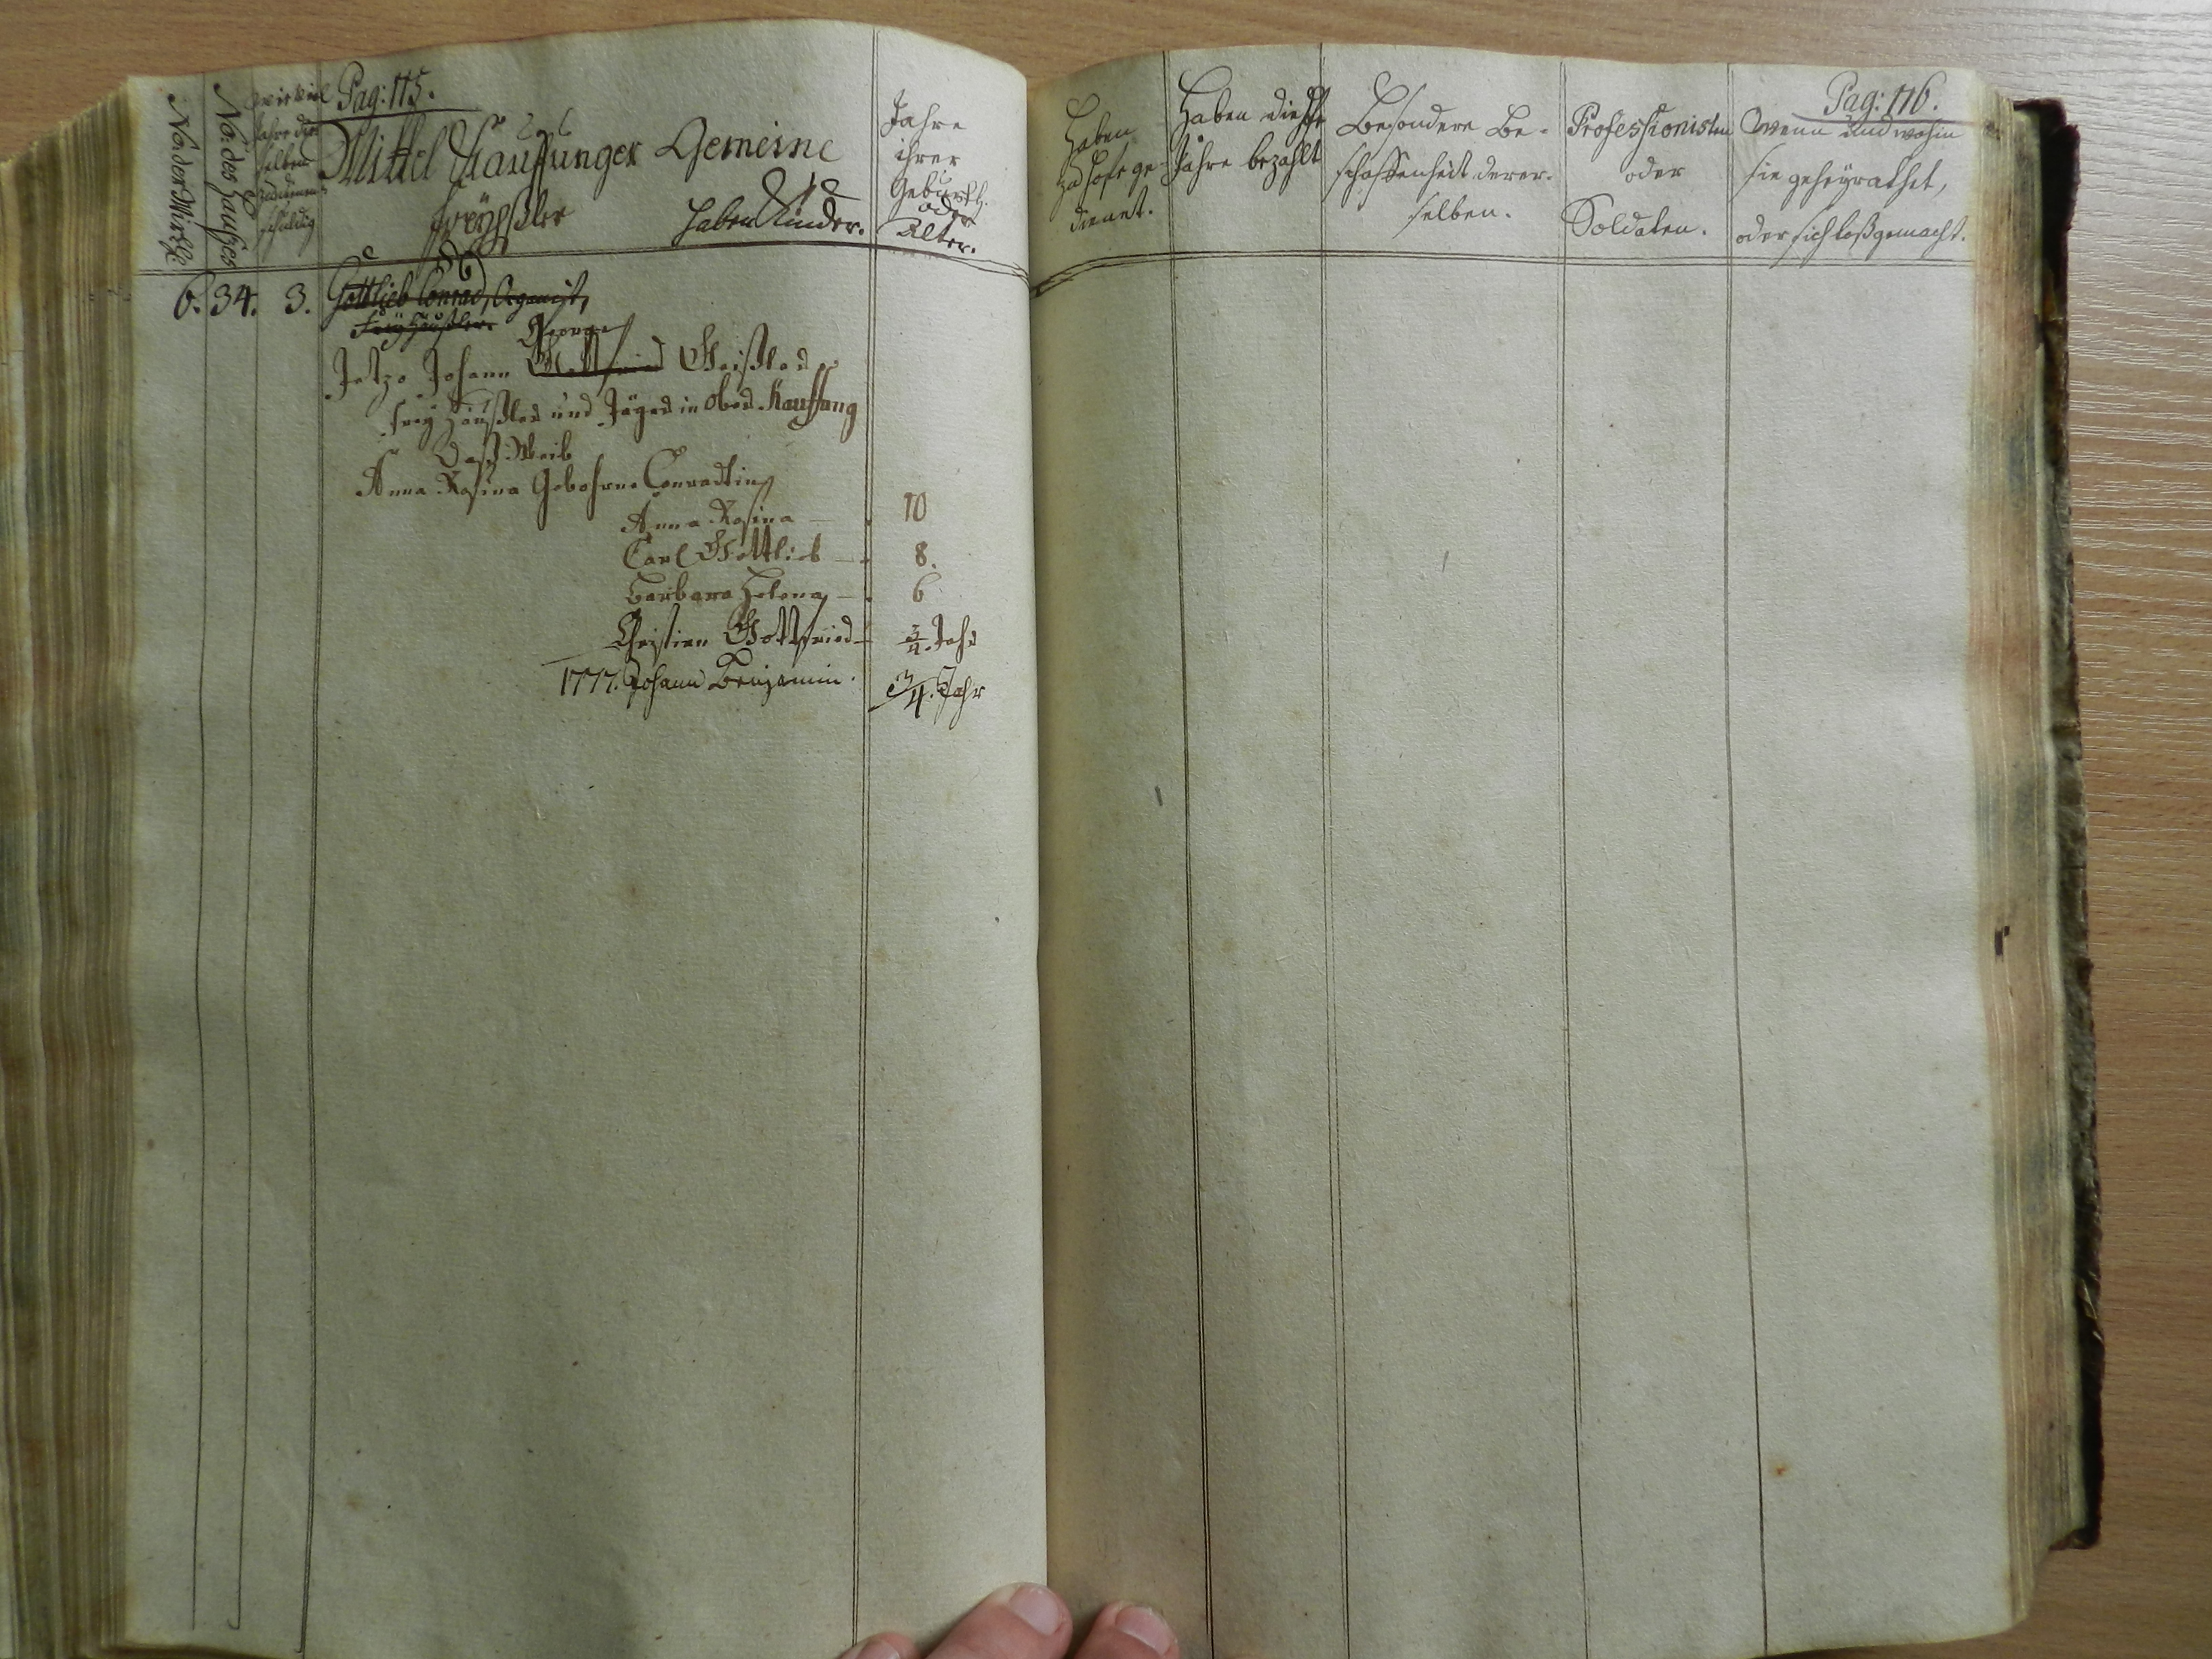 Pag: 115.
No: der Wirthe
No: des Hauses
wie viel
Jahre die
selben
zu dienen
schuldig
Mittel Kauffunger Gemeine
Freyhäußler
haben Kinder.
Jahre
ihrer
Geburth.
oder
Alter.
6. 34. 3. Gottlieb Conrad, Organist,
Freyhäußler.
George
Jetzo Johann Gottfried Geißler
Frey Häußler und Jäger in Ober Kauffung
Daß Weib
Anna Rosina Gebohrne Conradtin
Anna Rosina — 10
Carl Gottlieb — 8.
Barbara Helena — 6
Christian Gottfried — 3/4. Jahr
1777. Johann Benjamin. 3/4. Jahr
Pag: 116.
Haben
zu Hofe ge-
dienet.
Haben diese
Jahre bezahlt
Besondere Be-
schaffenheit derer-
selben.
Professionisten
oder
Soldaten.
Wenn und wohin
sie geheyrathet,
oder sich loßgemacht.